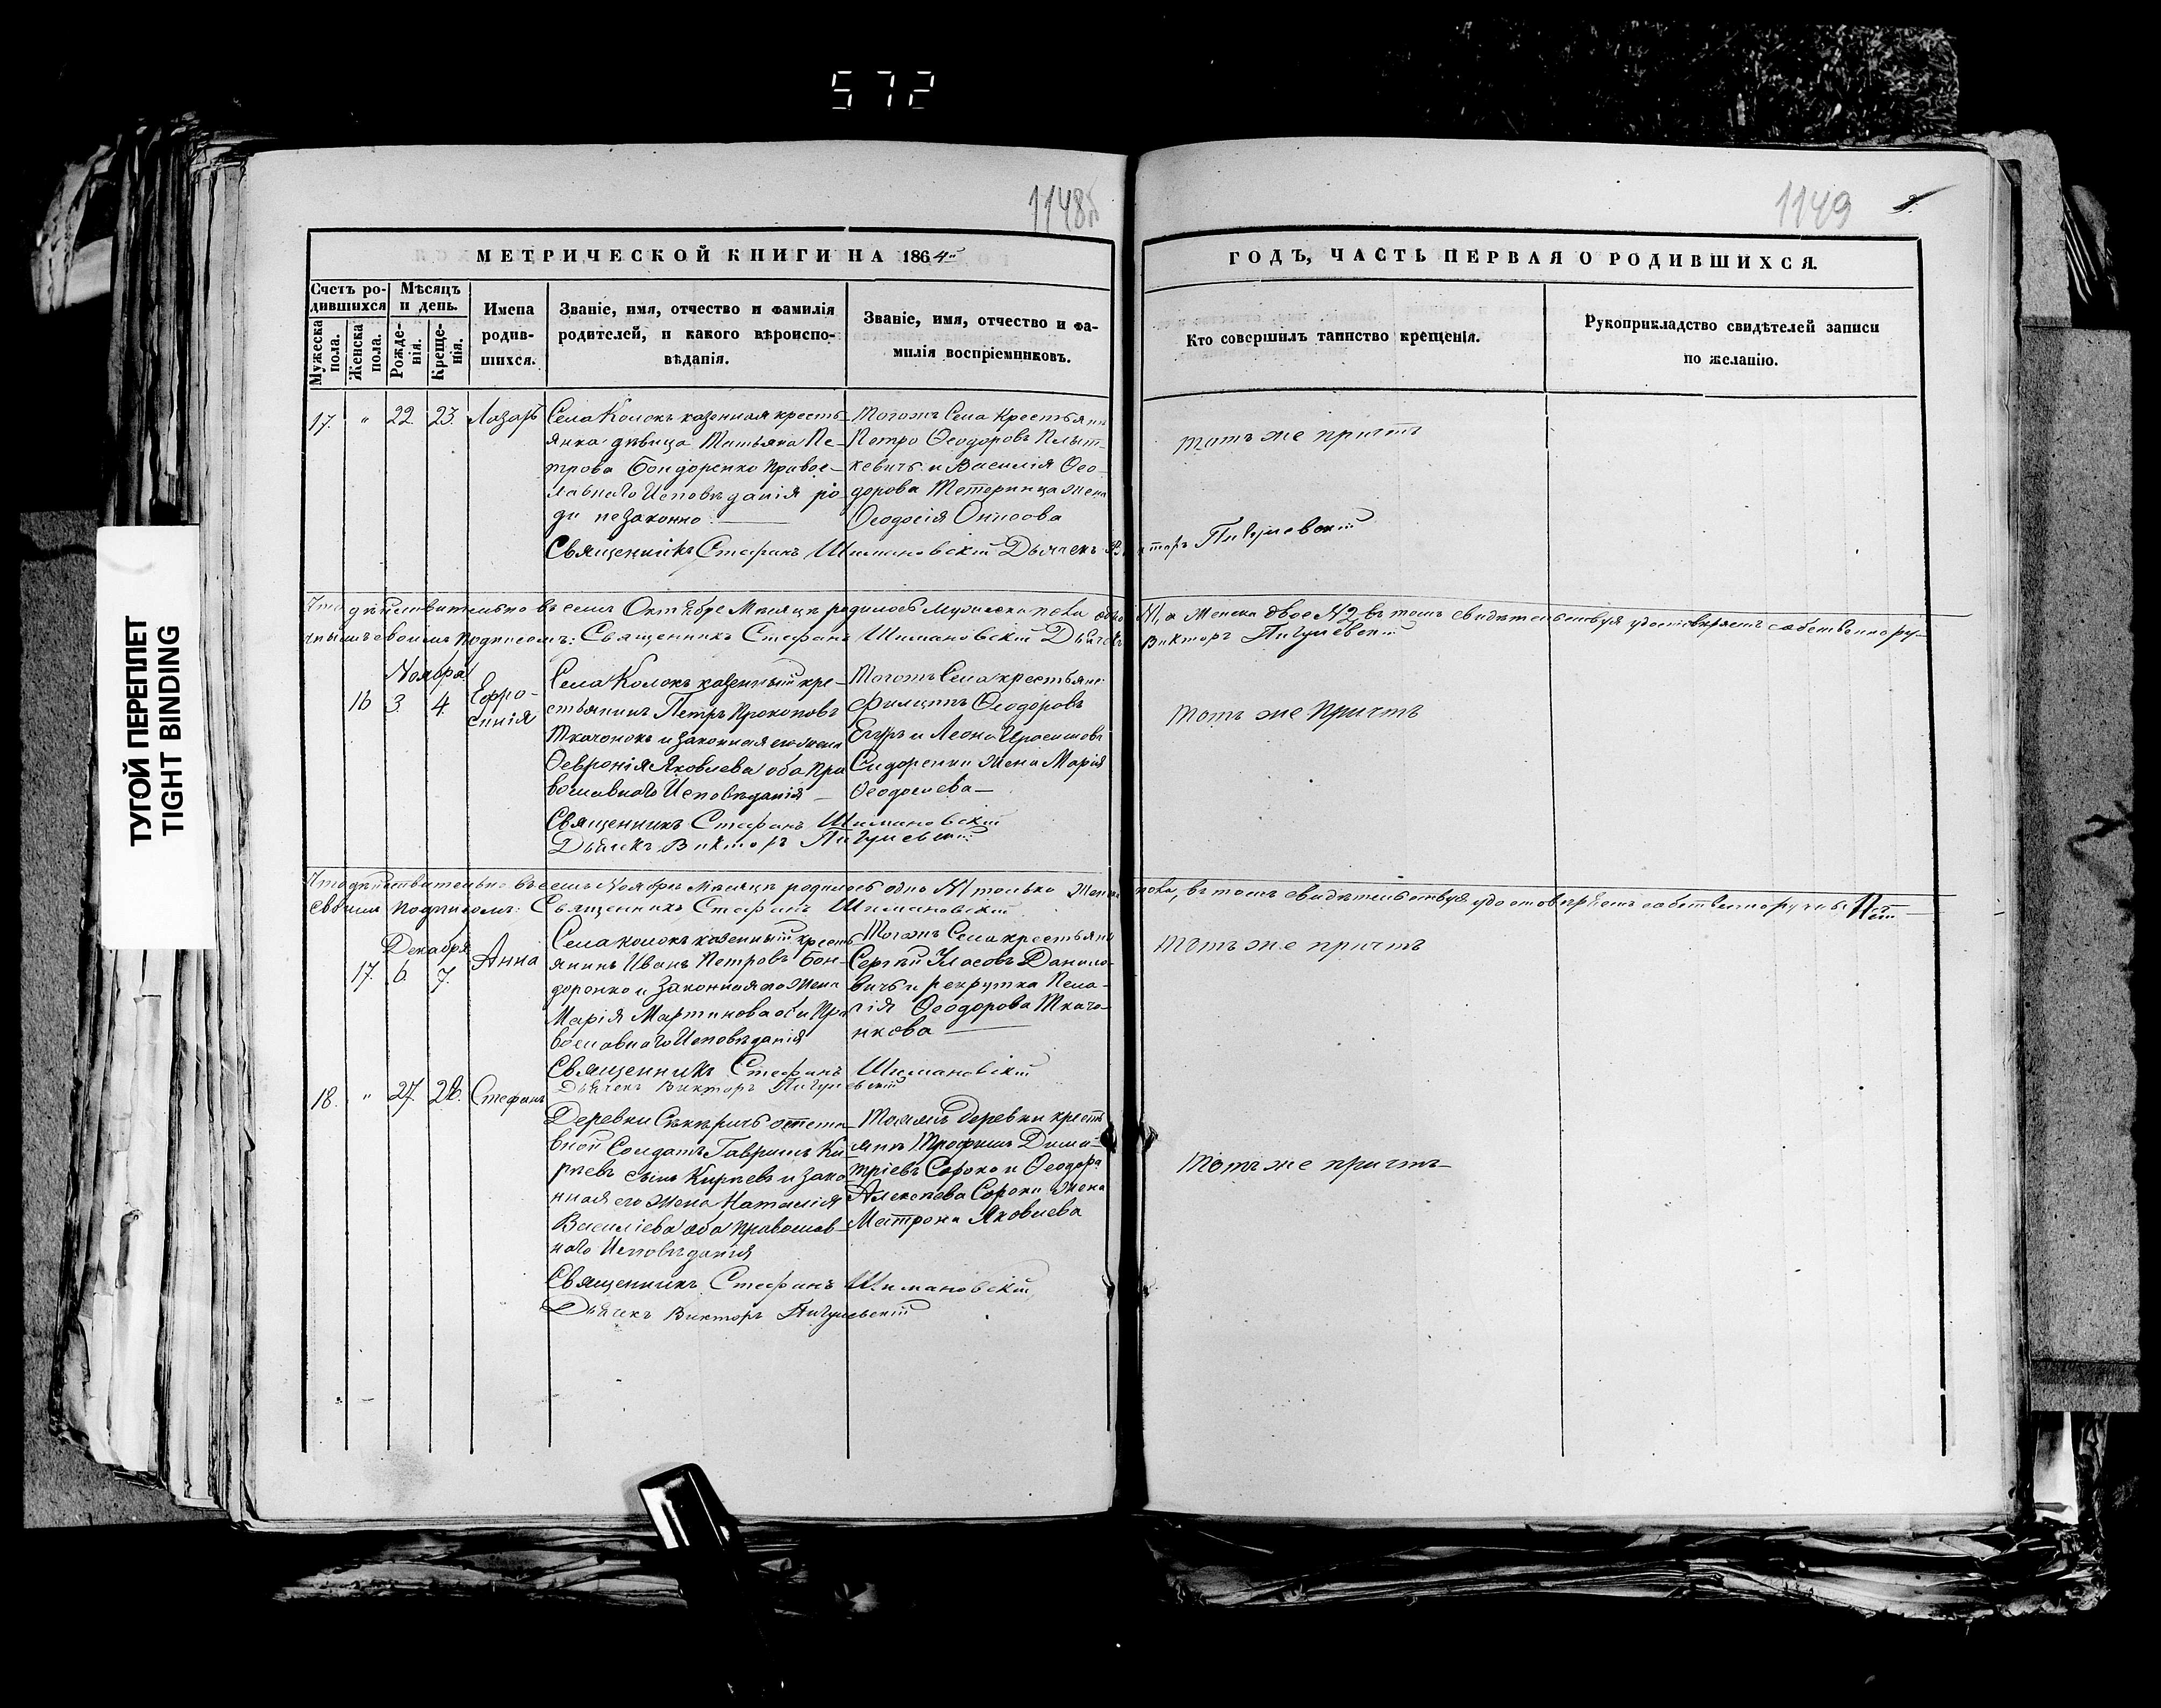 572
1148б
1149
ТУГОЙ ПЕРЕПЛЕТ
TIGHT BINDING
МЕТРИЧЕСКОЙ КНИГИ НА 1864й
ГОДЪ, ЧАСТЬ ПЕРВАЯ О РОДИВШИХСЯ.
Счетъ ро-
дившихся
Мужеска
пола.
Женска
пола.
Мѣсяцъ
и день.
Рожде-
нія.
Креще-
нія.
Имена
родив-
шихся.
Званіе, имя, отчество и фамилія
родителей, и какого вѣроиспо-
вѣданія.
Званіе, имя, отчество и фа-
милія воспріемниковъ.
Кто совершилъ таинство крещенія.
Рукоприкладство свидѣтелей записи
по желанію.
17. " 22. 23. Лазарь
Села Колокъ казенная кресть-
янка дѣвица Татьяна Пе-
трова Бондаренко правос-
лавнаго Исповѣданія ро-
ди незаконно.
Тогожъ Села Крестьяни
Петро Ѳеодоровъ
кевичъ и Василія Ѳео-
дорова жена
Ѳеодосія
тотъ же причтъ
Священникъ Стефанъ Шимановскій Дьячекъ Викторъ Пигулевскій
Что дѣйствительно въ семъ Октябре Месяцѣ родилось мужеска пола одно №1, а женска двое №2, въ томъ свидѣтельствуя удостовѣряетъ собственнору-
чнымъ своимъ подписомъ: Священникъ Стефанъ Шимановскій Дьячекъ Викторъ Пигулевскій
Ноября
16 3. 4. Ефро-
синія
Села Колокъ казенный кре-
стьянинъ Петръ Прокоповъ
Ткачонокъ и законная его жена
Ѳевронія Яковлева оба пра
вославнаго Исповѣданія
Тогожъ Села крестьяни
Филиппъ Ѳеодоровъ
и Леона
Сидоренки жена Марія
Ѳеодосиева
тотъ же причтъ
Священникъ Стефанъ Шимановскій
Дьячекъ Викторъ Пигулевскій
Что дѣйствительно въ семъ Ноябрѣ Месяцѣ родилось одно №1 только женска пола, въ томъ свидѣтельствуя удостовѣряетъ собственноручнымъ
своимъ подписомъ: Священникъ Стефанъ Шимановскій
Декабря
17. 6. 7. Анна
Села Колокъ казенный кресть
янинъ Иванъ Петровъ Бон-
даренко и законная его жена
Марія Мартинова оба Пра
вославнаго Исповѣданія
Тогожъ Села крестьяни
Сергѣй Уласовъ Данило-
вичъ и рекрутка Пела-
гія Ѳеодорова Ткачо-
нкова
тотъ же причтъ
Священникъ Стефанъ Шимановскій
Дьячекъ Викторъ Пигулевскій
18. " 27. 28. Стефанъ
Деревки отста-
вной Солдатъ Гавриилъ Ки
рѣевъ сынъ Кирѣевъ и зако
нная его жена Наталія
Василіева оба православ-
наго Исповѣданія
Таяжъ деревки кресть
янъ Трофимъ Дими-
тріевъ Сорока и Ѳеодора
Алексѣева Сороки жена
Матрона Яковлева
тотъ же причтъ
Священникъ Стефанъ Шимановскій
Дьячекъ Викторъ Пигулевскій